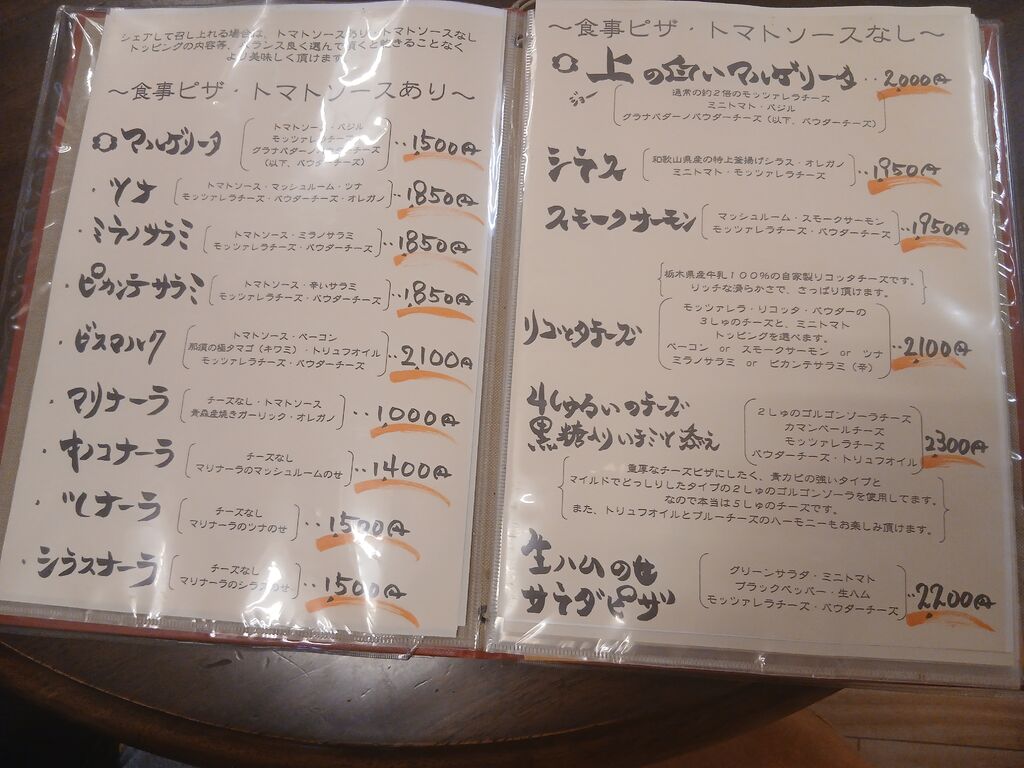 シェアして召し上れる場合は、トマトソースあり、トマトソースなし
トッピングの内容等、バランス良く選んで頂くと飽きることなく
より美味しく頂けます。
～食事ピザ・トマトソースあり～
マルゲリータ
トマトソース・バジル
モッツァレラチーズ
グラナパダーノパウダーチーズ
(以下、パウダーチーズ)
‥1500円
・ツナ
トマトソース・マッシュルーム・ツナ
モッツァレラチーズ・パウダーチーズ・オレガノ
‥1850円
・ミラノサラミ
トマトソース・ミラノサラミ
モッツァレラチーズ・パウダーチーズ
‥1850円
・ピカンテサラミ
トマトソース・辛いサラミ
モッツァレラチーズ・パウダーチーズ
‥1850円
・ビスマルク
トマトソース・ベーコン
那須の極タマゴ(キワミ)・トリュフオイル
モッツァレラチーズ・パウダーチーズ
‥2100円
・マリナーラ
チーズなし・トマトソース
青森産焼きガーリック・オレガノ
‥1000円
・キノコナーラ
チーズなし
マリナーラのマッシュルームのせ
‥1400円
・ツナーラ
チーズなし
マリナーラのツナのせ
‥1500円
・シラスナーラ
チーズなし
マリナーラのシラスのせ
‥1500円
～食事ピザ・トマトソースなし～
上の白いマルゲリータ‥2000円
ジョー
通常の約2倍のモッツァレラチーズ
ミニトマト・バジル
グラナパダーノパウダーチーズ(以下、パウダーチーズ)
シラス
和歌山県産の特上釜揚げシラス・オレガノ
ミニトマト・モッツァレラチーズ
‥1950円
スモークサーモン
マッシュルーム・スモークサーモン
モッツァレラチーズ・パウダーチーズ
‥1950円
栃木県産牛乳100%の自家製リコッタチーズです。
リッチな滑らかさで、さっぱり頂けます。
リコッタチーズ
モッツァレラ・リコッタ・パウダーの
3しゅのチーズと、ミニトマト
トッピングを選べます。
ベーコン or スモークサーモン or ツナ
ミラノサラミ or ピカンテサラミ(辛)
‥2100円
4しゅるいのチーズ
黒糖入りハチミツ添え
2しゅのゴルゴンゾーラチーズ
カマンベールチーズ
モッツァレラチーズ
パウダーチーズ・トリュフオイル
2300円
重厚なチーズピザにしたく、青カビの強いタイプと
マイルドでどっしりしたタイプの2しゅのゴルゴンゾーラを使用してます。
なので本当は5しゅのチーズです。
また、トリュフオイルとブルーチーズのハーモニーもお楽しみ頂けます。
生ハムのせ
サラダピザ
グリーンサラダ・ミニトマト
ブラックペッパー・生ハム
モッツァレラチーズ・パウダーチーズ
‥2200円